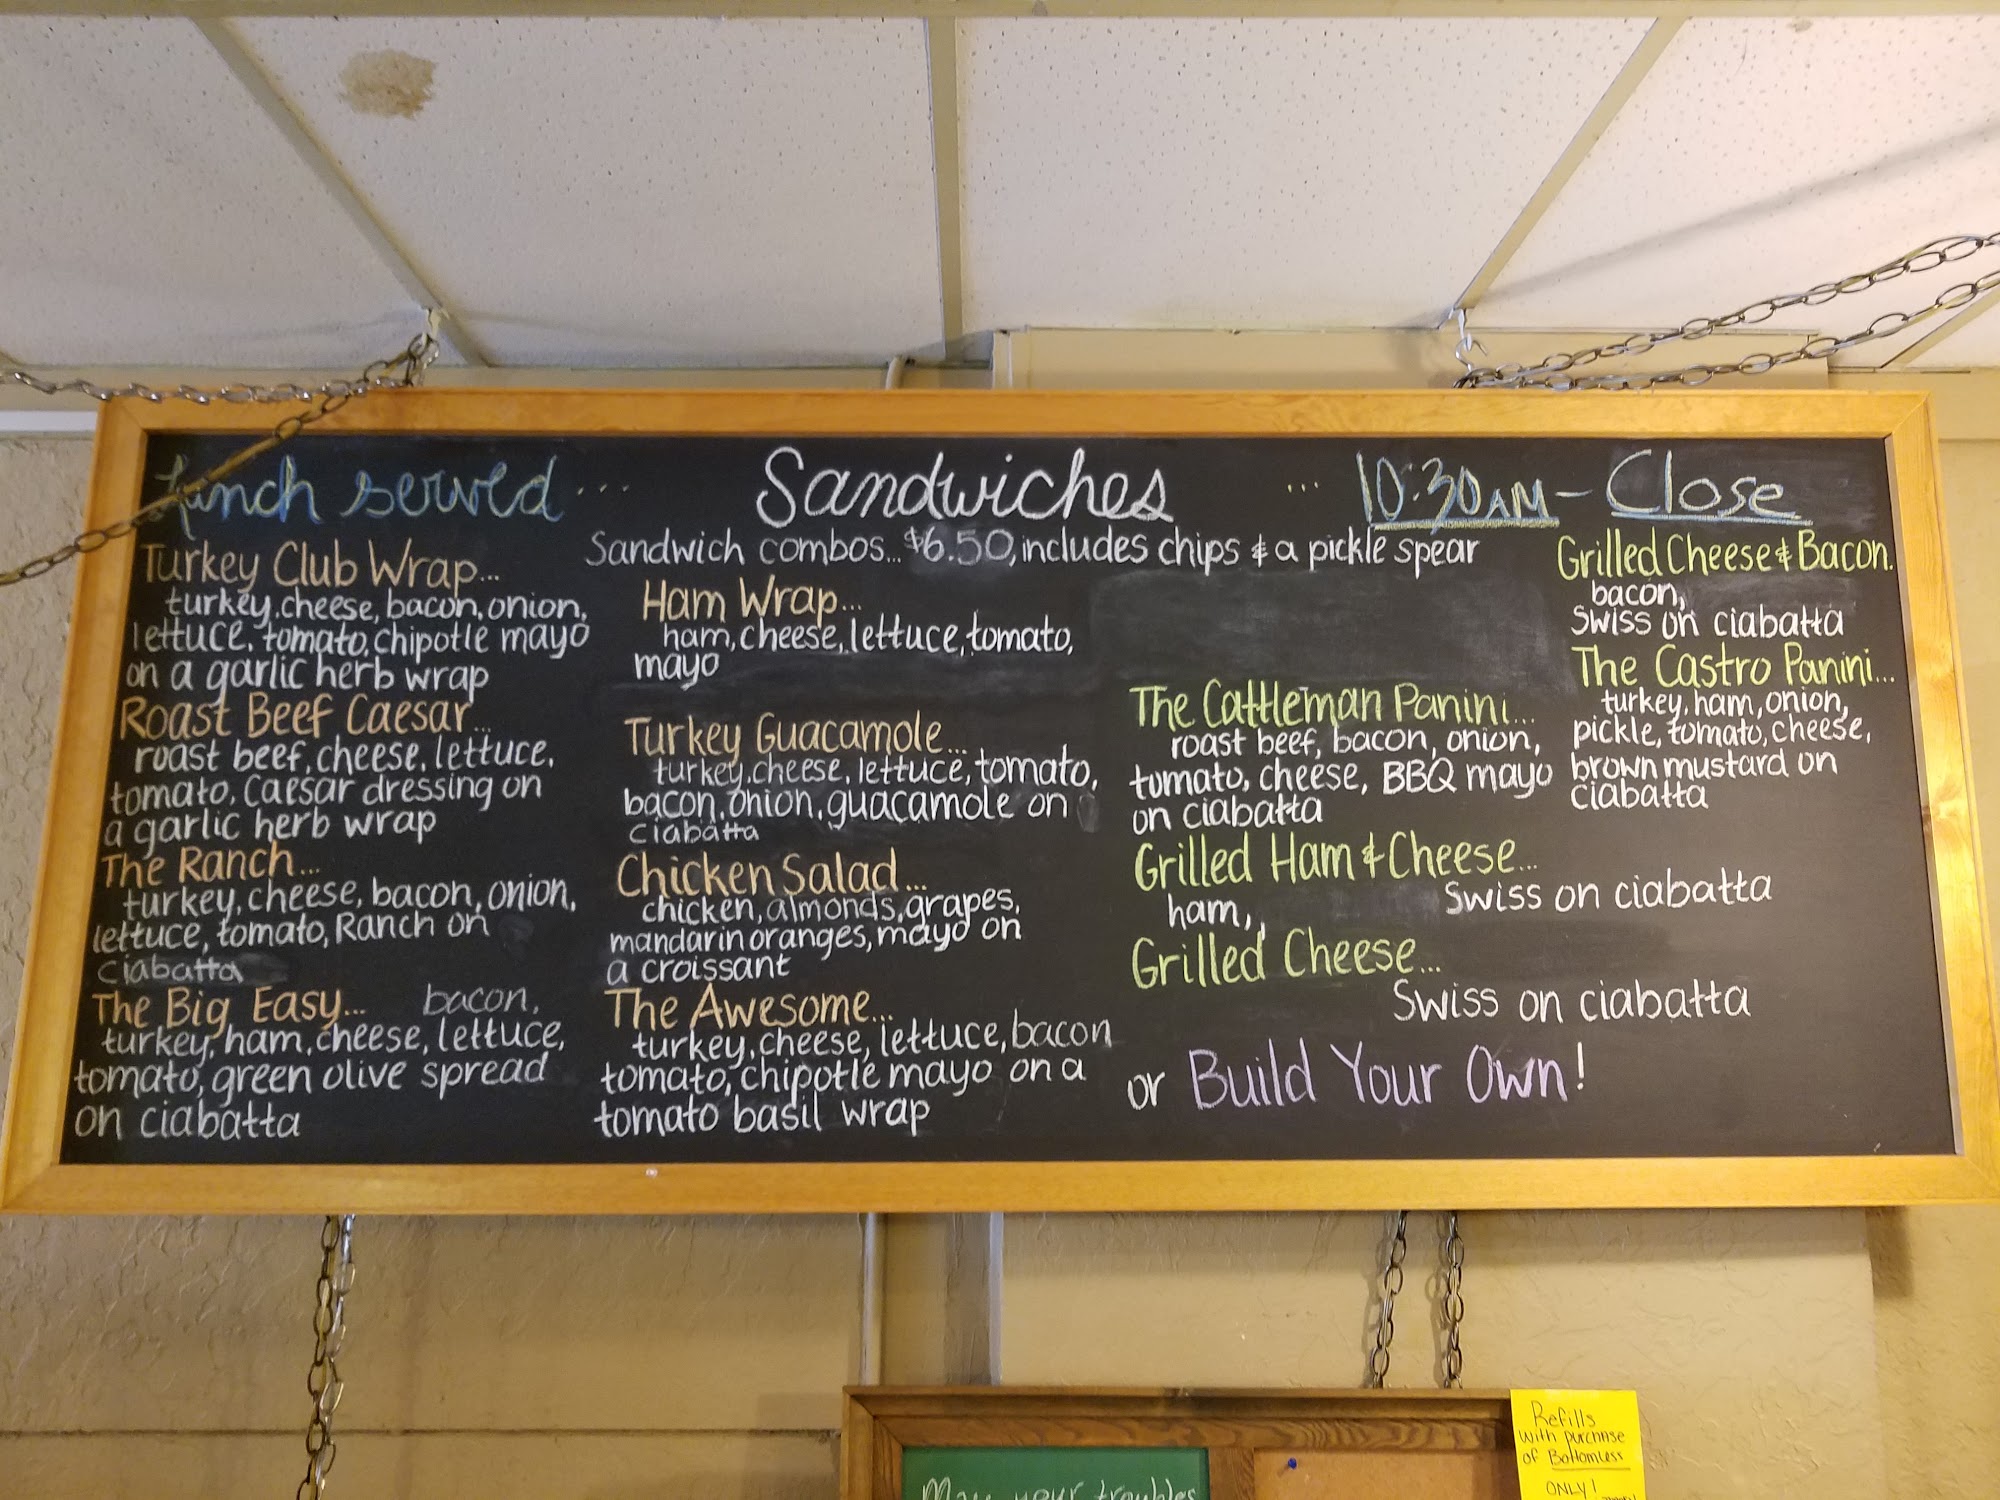 Lunch served... Sandwiches ... 10:30AM - Close
Sandwich combos... $6.50, includes chips & a pickle spear
Turkey Club Wrap...
turkey, cheese, bacon, onion,
lettuce, tomato, chipotle mayo
on a garlic herb wrap
Roast Beef Caesar...
roast beef, cheese, lettuce,
tomato, Caesar dressing on
a garlic herb wrap
The Ranch...
turkey, cheese, bacon, onion,
lettuce, tomato, Ranch on
ciabatta
The Big Easy... bacon,
turkey, ham, cheese, lettuce,
tomato, green olive spread
on ciabatta
Ham Wrap...
ham, cheese, lettuce, tomato,
mayo
Turkey Guacamole...
turkey, cheese, lettuce, tomato,
bacon, onion, guacamole on
ciabatta
Chicken Salad...
chicken, almonds, grapes,
mandarin oranges, mayo on
a croissant
The Awesome...
turkey, cheese, lettuce, bacon
tomato, chipotle mayo on a
tomato basil wrap
The Cattleman Panini...
roast beef, bacon, onion,
tomato, cheese, BBQ mayo
on ciabatta
Grilled Ham & Cheese...
ham, Swiss on ciabatta
Grilled Cheese...
Swiss on ciabatta
or Build Your Own!
Grilled Cheese & Bacon.
bacon,
Swiss on ciabatta
The Castro Panini...
turkey, ham, onion,
pickle, tomato, cheese,
brown mustard on
ciabatta
May your troubles
Refills
with purchase
of Bottomless
ONLY!